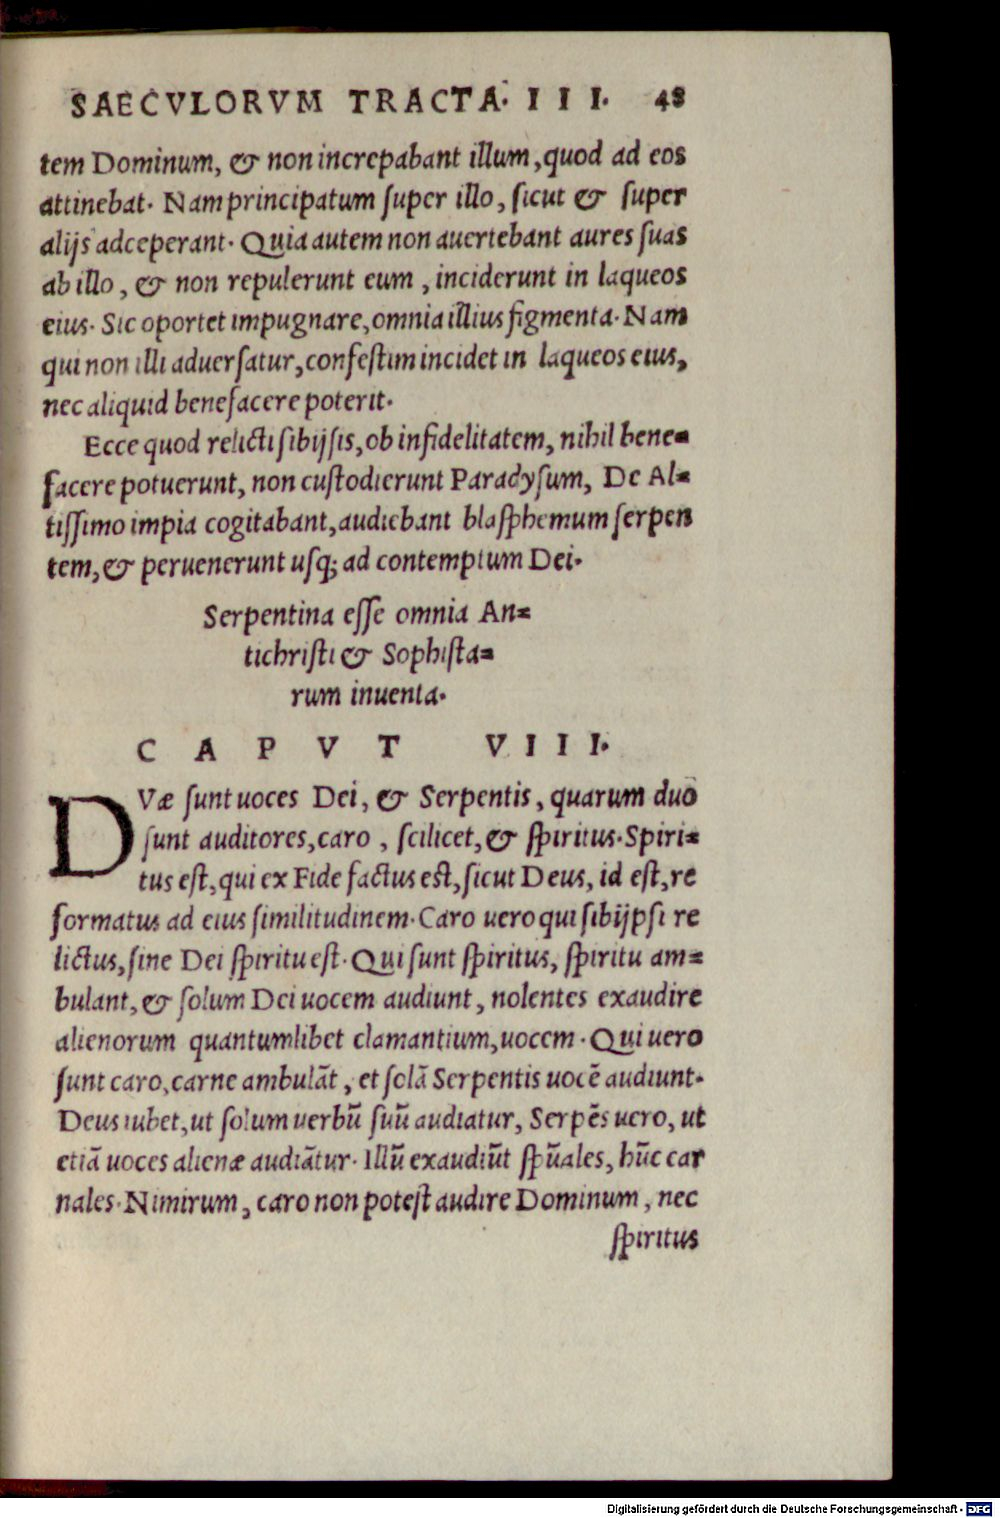 SAECVLORVM TRACTA. III. 48
tem Dominum, & non increpabant illum, quod ad eos
attinebat. Nam principatum super illo, sicut & super
alijs adceperant. Quia autem non auertebant aures suas
ab illo, & non repulerunt eum, inciderunt in laqueos
eius. Sic oportet impugnare, omnia illius figmenta. Nam
qui non illi aduersatur, confestim incidet in laqueos eius,
nec aliquid benefacere poterit.
Ecce quod relicti sibijsis, ob infidelitatem, nihil bene=
facere potuerunt, non custodierunt Paradysum, De Al=
tissimo impia cogitabant, audiebant blasphemum serpen
tem, & peruenerunt usq; ad contemptum Dei.
Serpentina esse omnia An=
tichristi & Sophista=
rum inuenta.
CAPVT VIII.
DVæ sunt uoces Dei, & Serpentis, quarum duo
sunt auditores, caro, scilicet, & spiritus. Spiri=
tus est, qui ex Fide factus est, sicut Deus, id est, re
formatus ad eius similitudinem. Caro uero qui sibijpsi re
lictus, sine Dei spiritu est. Qui sunt spiritus, spiritu am=
bulant, & solum Dei uocem audiunt, nolentes exaudire
alienorum quantumlibet clamantium, uocem. Qui uero
sunt caro, carne ambulāt, et solā Serpentis uocē audiunt.
Deus iubet, ut solum uerbū suū audiatur, Serpēs uero, ut
etiā uoces alienæ audiātur. Illū exaudiūt spūales, hūc car
nales. Nimirum, caro non potest audire Dominum, nec
spiritus
Digitalisierung gefördert durch die Deutsche Forschungsgemeinschaft - DFG